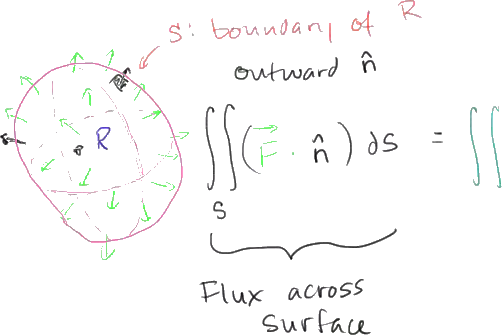 S: boundary of R
outward n̂
R
∬_S (F⃗ · n̂) dS = ∬
Flux across
surface